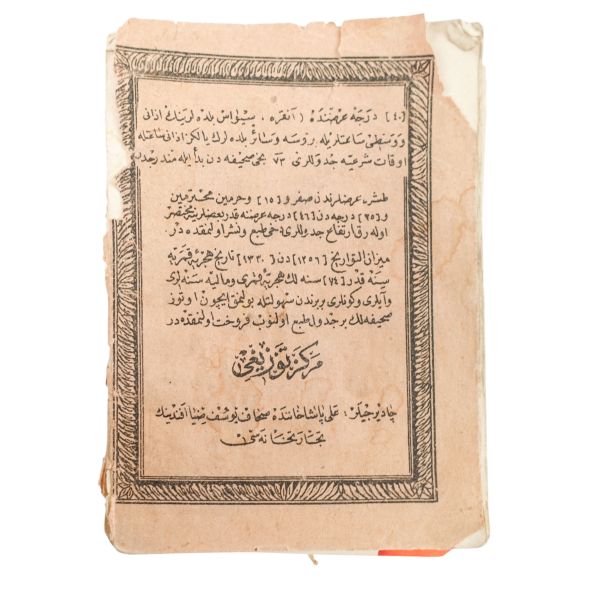 [٤٠] درجه عرضنده (آنقره ، سیواس بلده لرینك اذانى
ووسطى ساعتلریله روسه وسائر بلده لرك یالكز اذانى ساعتله
اوقات شرعیه جدوللرى ٧٣ نجى صحیفه دن بدأ ایله مندرجدر
طشره عرضلرندن صفر و [١٥] وحرمین محترمین
و[٣٥] درجه دن [٤٦] درجه عرضنه قدر
اوله رق ارتفاع جدوللرى دخى طبع ونشر اولنمقده در
میزان التواریخ [١٢٥٦] دن [١٣٣٠] تاریخ هجریۀ قمریه
سینه قدر [٧٤] سنه لك هجریۀ قمرى ومالیه سنه لرى
وآیلرى وكونلرى وبرندن سهولتله بولنمق ایچون اوتوز
صحیفه لك بر جدول طبع اولنوب فروخت اولنمقده در
مركز توزیعى
چادیرجیلر : على پاشا خاننده صحاف یوسف ضیا افندینك
تجارتخانه سى